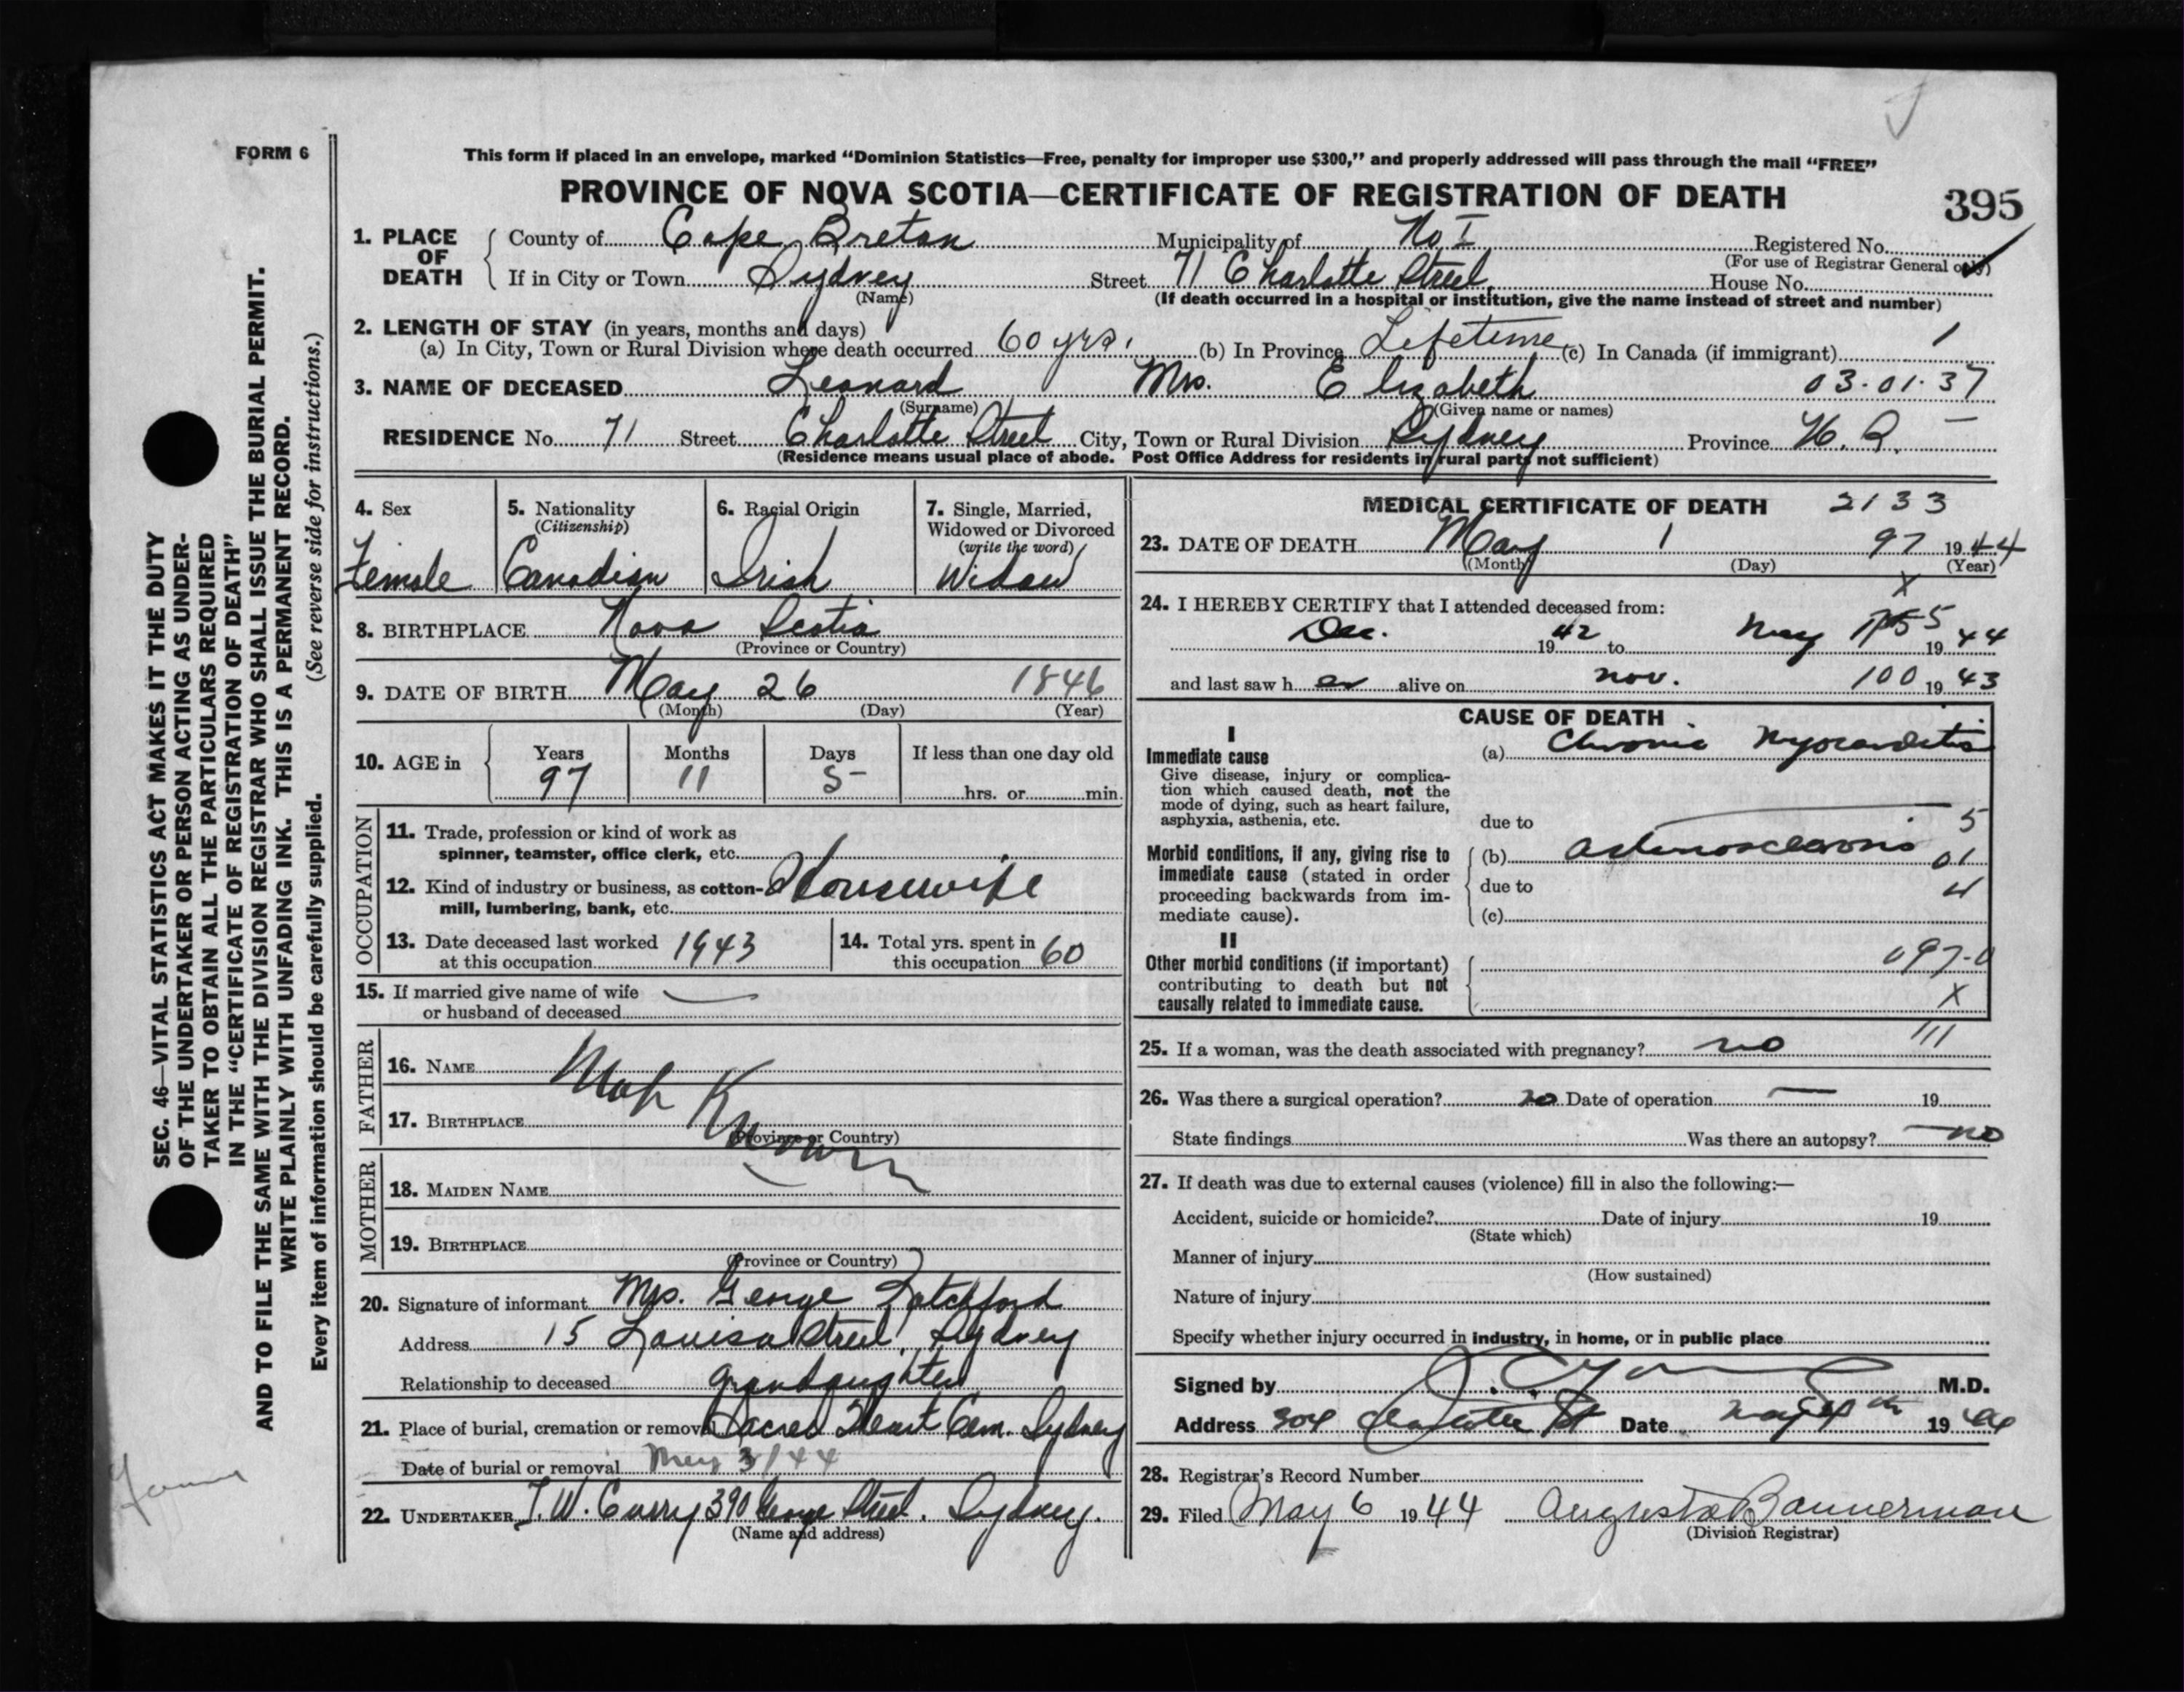 FORM 6
This form if placed in an envelope, marked “Dominion Statistics—Free, penalty for improper use $300,” and properly addressed will pass through the mail “FREE”
PROVINCE OF NOVA SCOTIA—CERTIFICATE OF REGISTRATION OF DEATH
395
1. PLACE OF DEATH
County of Cape Breton Municipality of No I Registered No.
(For use of Registrar General only)
If in City or Town Sydney Street 71 Charlotte Street House No.
(Name) (If death occurred in a hospital or institution, give the name instead of street and number)
2. LENGTH OF STAY (in years, months and days)
(a) In City, Town or Rural Division where death occurred 60 yrs. (b) In Province Lifetime (c) In Canada (if immigrant) 1
3. NAME OF DECEASED Leonard Mrs. Elizabeth 03-01-37
(Surname) (Given name or names)
RESIDENCE No. 71 Street Charlotte Street City, Town or Rural Division Sydney Province N.S.
(Residence means usual place of abode. Post Office Address for residents in rural parts not sufficient)
4. Sex
Female
5. Nationality
(Citizenship)
Canadian
6. Racial Origin
Irish
7. Single, Married,
Widowed or Divorced
(write the word)
Widow
8. BIRTHPLACE Nova Scotia
(Province or Country)
9. DATE OF BIRTH May 26 1846
(Month) (Day) (Year)
10. AGE in
Years Months Days If less than one day old
97 11 5 hrs. or min.
OCCUPATION
11. Trade, profession or kind of work as
spinner, teamster, office clerk, etc.
12. Kind of industry or business, as cotton-
mill, lumbering, bank, etc.
Housewife
13. Date deceased last worked
at this occupation 1943
14. Total yrs. spent in
this occupation 60
15. If married give name of wife
or husband of deceased
FATHER
16. NAME
17. BIRTHPLACE
(Province or Country)
Not Known
MOTHER
18. MAIDEN NAME
19. BIRTHPLACE
(Province or Country)
20. Signature of informant Mrs. George Latchford
Address 15 Louisa Street, Sydney
Relationship to deceased grandaughter
21. Place of burial, cremation or removal Sacred Heart Cem. Sydney
Date of burial or removal May 3/44
22. UNDERTAKER T.W. Curry 390 George Street, Sydney.
(Name and address)
MEDICAL CERTIFICATE OF DEATH 2133
23. DATE OF DEATH May 1 97 1944
(Month) (Day) (Year)
X
24. I HEREBY CERTIFY that I attended deceased from:
Dec. 1942 to May 1944
and last saw h er alive on nov. 100 1943
CAUSE OF DEATH
I
Immediate cause
Give disease, injury or complica-
tion which caused death, not the
mode of dying, such as heart failure,
asphyxia, asthenia, etc.
(a) Chronic Myocarditis
due to 5
Morbid conditions, if any, giving rise to
immediate cause (stated in order
proceeding backwards from im-
mediate cause).
(b) arteriosclerosis 01
due to 4
(c)
II
Other morbid conditions (if important)
contributing to death but not
causally related to immediate cause.
097-0
X
25. If a woman, was the death associated with pregnancy? no 111
26. Was there a surgical operation? no Date of operation 19
State findings Was there an autopsy? no
27. If death was due to external causes (violence) fill in also the following:—
Accident, suicide or homicide? Date of injury 19
(State which)
Manner of injury
(How sustained)
Nature of injury
Specify whether injury occurred in industry, in home, or in public place
Signed by M.D.
Address 304 Charlotte St Date May 4th 1944
28. Registrar’s Record Number
29. Filed May 6 1944 Augusta Bannerman
(Division Registrar)
SEC. 46—VITAL STATISTICS ACT MAKES IT THE DUTY
OF THE UNDERTAKER OR PERSON ACTING AS UNDER-
TAKER TO OBTAIN ALL THE PARTICULARS REQUIRED
IN THE “CERTIFICATE OF REGISTRATION OF DEATH”
AND TO FILE THE SAME WITH THE DIVISION REGISTRAR WHO SHALL ISSUE THE BURIAL PERMIT.
WRITE PLAINLY WITH UNFADING INK. THIS IS A PERMANENT RECORD.
Every item of information should be carefully supplied. (See reverse side for instructions.)